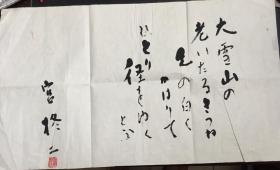 大雪山の
老いたるきつね
毛の白く
かはりて
ひとり径をゆく
とふ
宮柊二